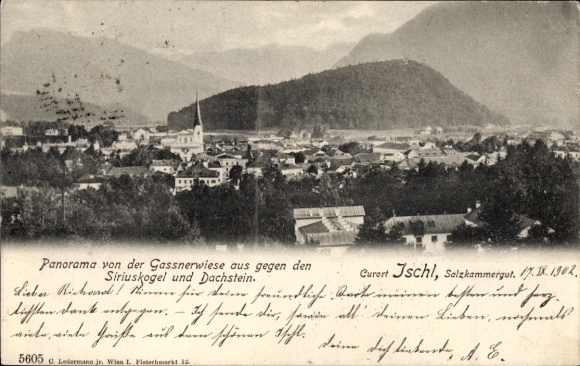 Panorama von der Gassnerwiese aus gegen den
Siriuskogel und Dachstein.
Curort Ischl, Salzkammergut. 17. IX. 1902.
Lieber Richard! Nimm für deine freundliche Karte meinen besten und herz-
lichsten Dank entgegen. – Ich sende dir, sowie all' deinen Lieben, nochmals
viele, viele Grüße aus dem schönen Ischl.
Deine dich liebende, A. E.
5605 C. Ledermann jr. Wien I. Fleischmarkt 12.